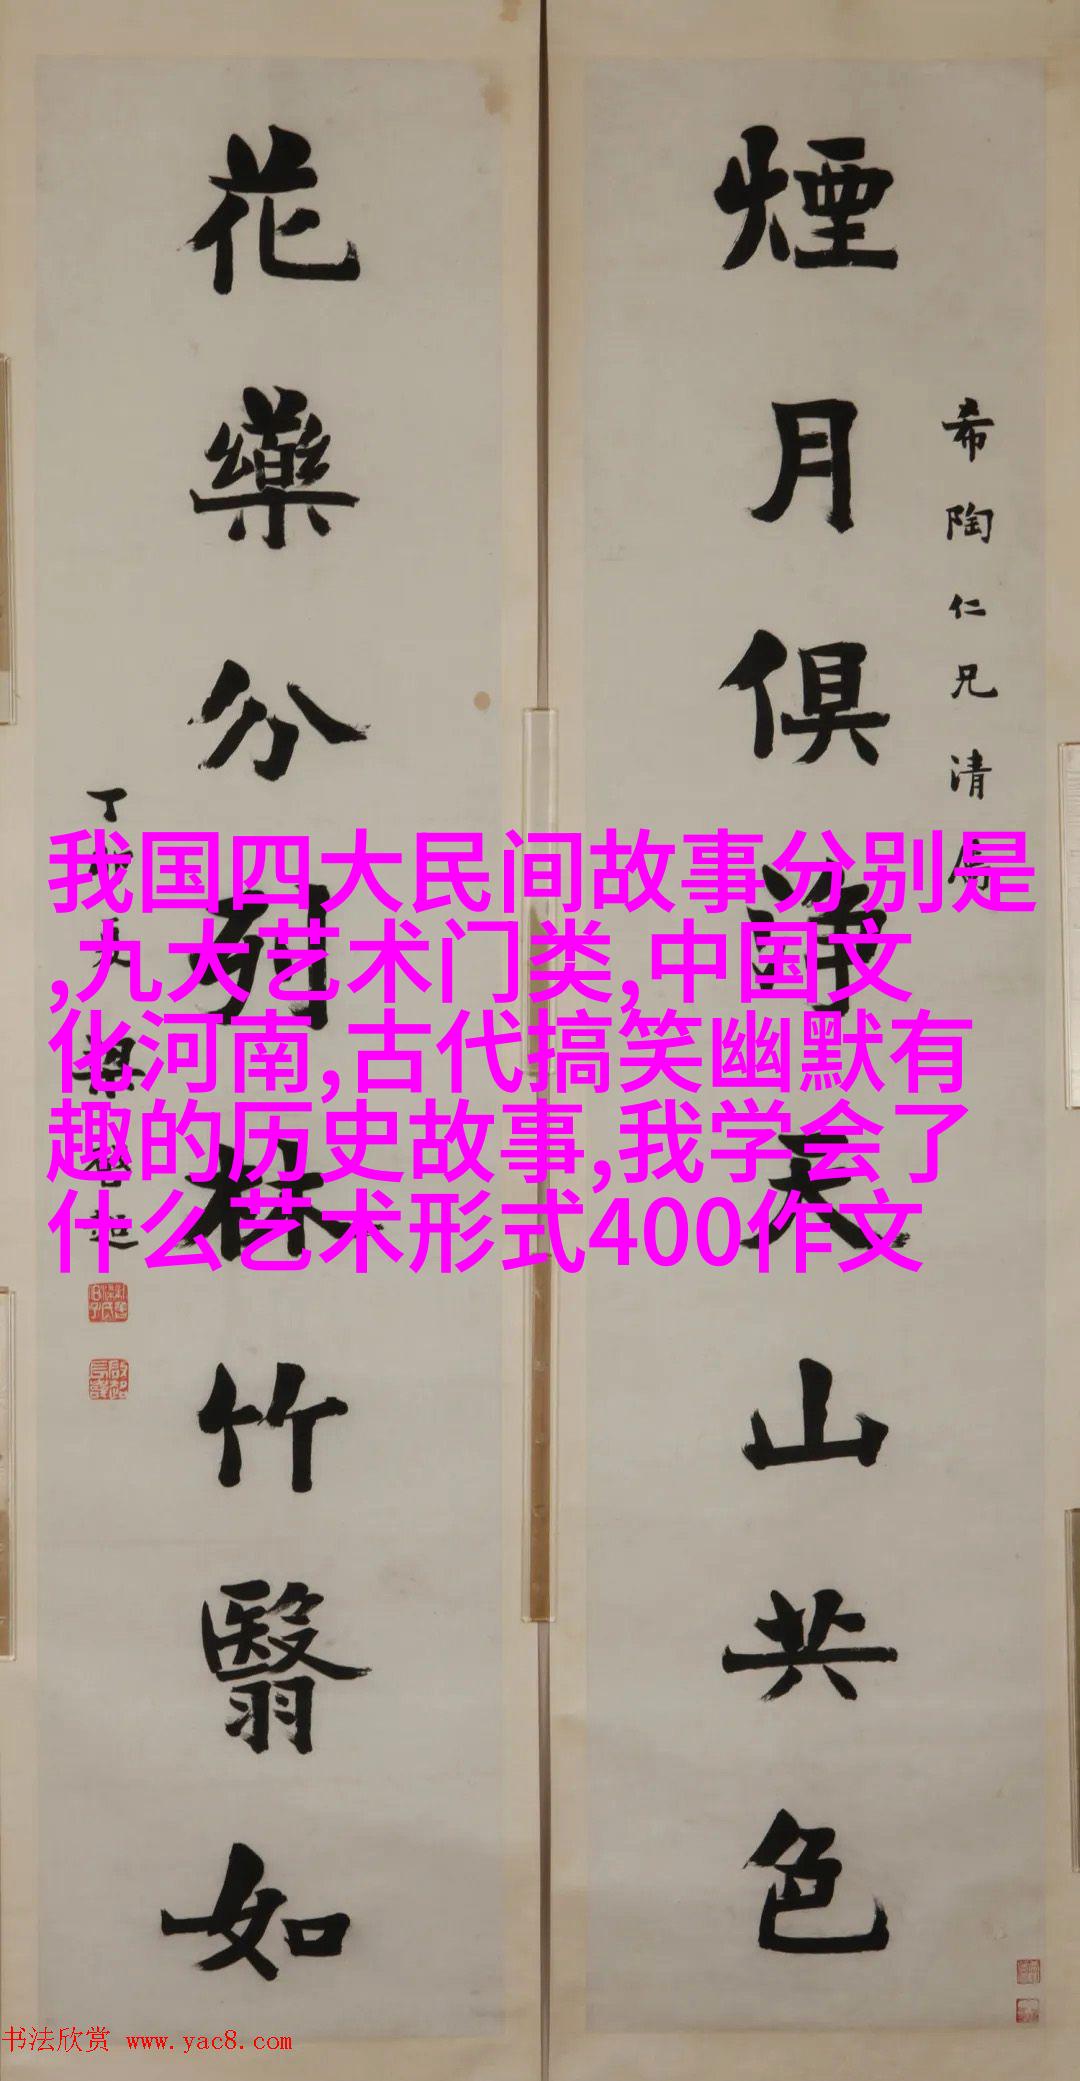 煙月俱静天山共色
希陶仁兄清属
花藥分列林竹翳如
丁
梁啓超
我国四大民间故事分别是
,九大艺术门类,中国文
化河南,古代搞笑幽默有
趣的历史故事,我学会了
什么艺术形式400作文
书法欣赏 www.yac8.com